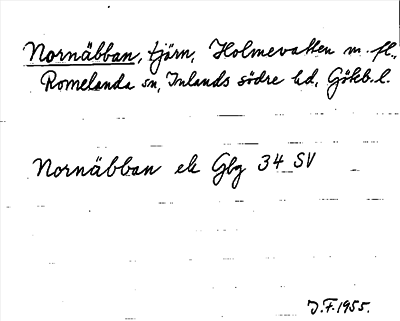 Nornäbban, tjärn, Holmevatten m. fl.,
Romelanda sn, Inlands södre hd, Götéb. l.
Nornäbban ek Gbg 34 SV
J.F. 1955.